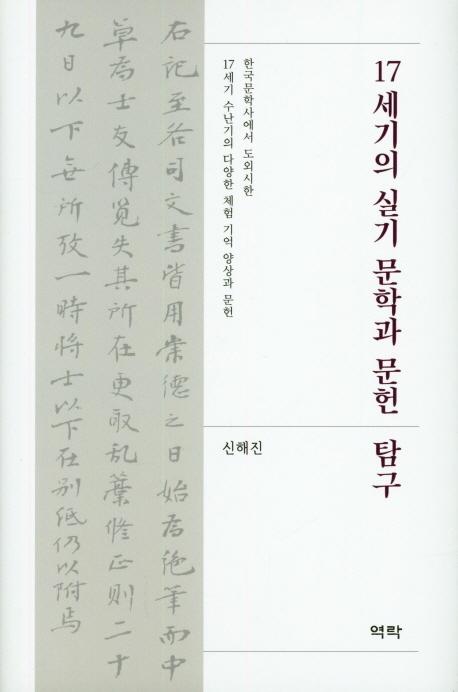 17세기의 실기 문학과 문헌 탐구
한국문학사에서 도외시한
17세기 수난기의 다양한 체험 기억 양상과 문헌
신해진
역락
右記至各司文書皆用崇德之日始爲絶筆而中
草爲士友傳覓失其所在更取乱藁修正則二十
九日以下無所攷一時將士以下在別紙仍以附焉